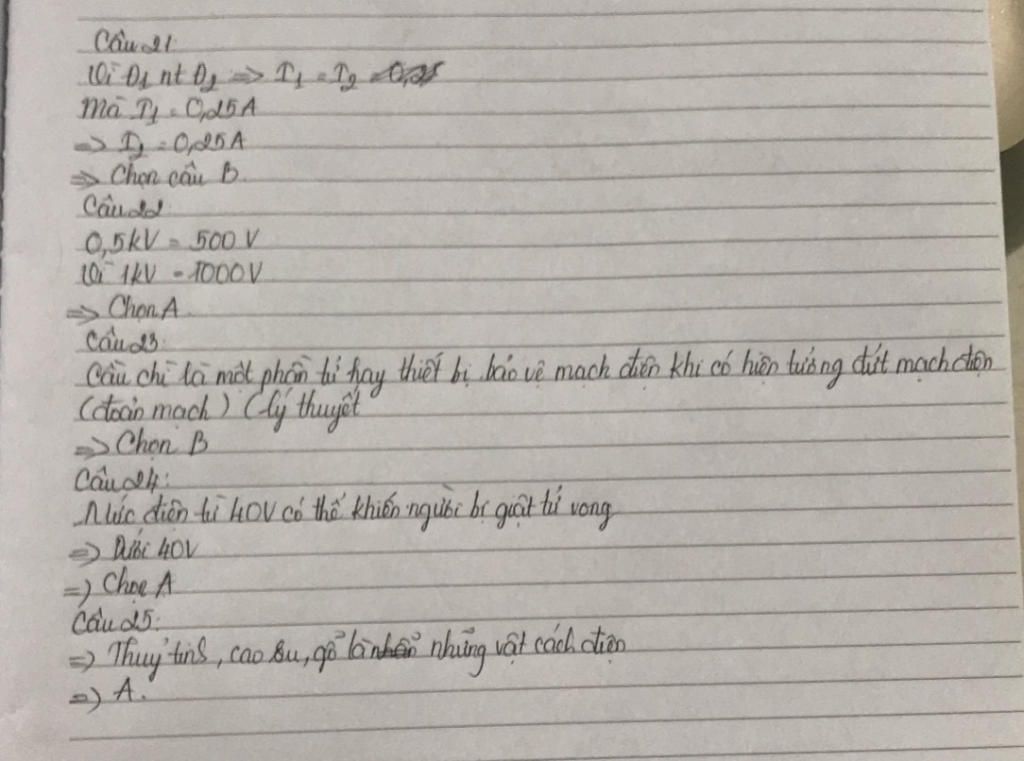 Câu 21:
Vì Đ1 nt Đ2 => I1 = I2 = 0,25
Mà I1 = 0,25A
=> I2 = 0,25A
=> Chọn câu B.
Câu 22:
0,5kV = 500V
Vì 1kV = 1000V
=> Chọn A.
Câu 23:
Cầu chì là một phần tử hay thiết bị bảo vệ mạch điện khi có hiện tượng đứt mạch điện
(đoản mạch) (lý thuyết
=> Chọn B
Câu 24:
Mức điện từ 40V có thể khiến người bị giật tử vong
=> Dưới 40V
=) Chọn A
Câu 25:
=> Thuỷ tinh, cao su, gỗ là những vật cách điện
=) A.